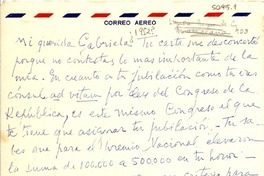 CORREO AEREO
5095.1
1952?
Mi querida Gabriela: Tu carta me desconcertó
porque no contestas lo más importante de la
mía. En cuanto a tu jubilación como tu eres
cónsul ad vitam por Ley del Congreso de la
República, es este mismo Congreso el que
te tiene que asignar tu jubilación. Tu sa-
bes que para el Premio Nacional elevaron
la suma de 100.000 a 500.000 en tu honor –